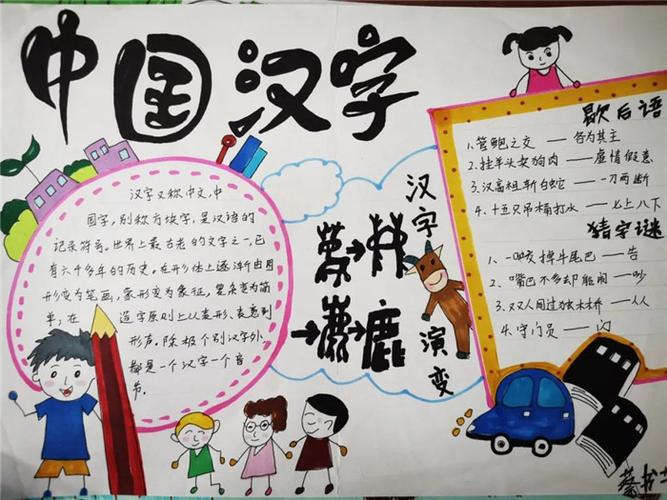 中国汉字
汉字又称中文,中
国字,别称方块字,是汉语的
记录符号。世界上最古老的文字之一,已
有六千多年的历史。在形体上逐渐由图
形变为笔画,象形变为象征,复杂变为简
单,在 造字原则上从表形、表意到
形声。除极个别汉字外
都是一个汉字一个音
节。
汉字演变
鹿
歇后语
1.管鲍之交 —— 各为其主
2.挂羊头卖狗肉 —— 虚情假意
3.汉高祖斩白蛇 —— 一刀两断
4.十五只吊桶打水 —— 七上八下
猜字谜
1.一口咬掉牛尾巴 — 告
2.嘴巴不多却能闹 — 吵
3.双人同过独木桥 — 从
4.守门员 — 闪